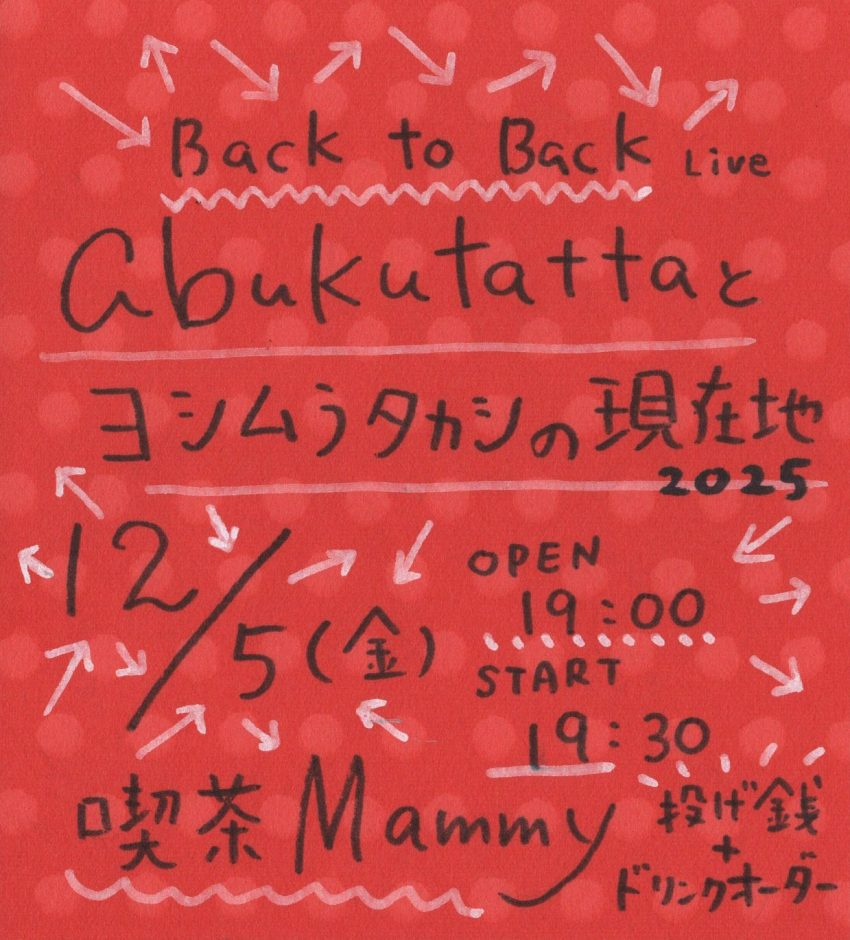 Back to Back Live
abukutattaと
ヨシムラタカシの現在地
2025
12/5(金)
OPEN
19:00
START
19:30
喫茶Mammy
投げ銭
+
ドリンクオーダー